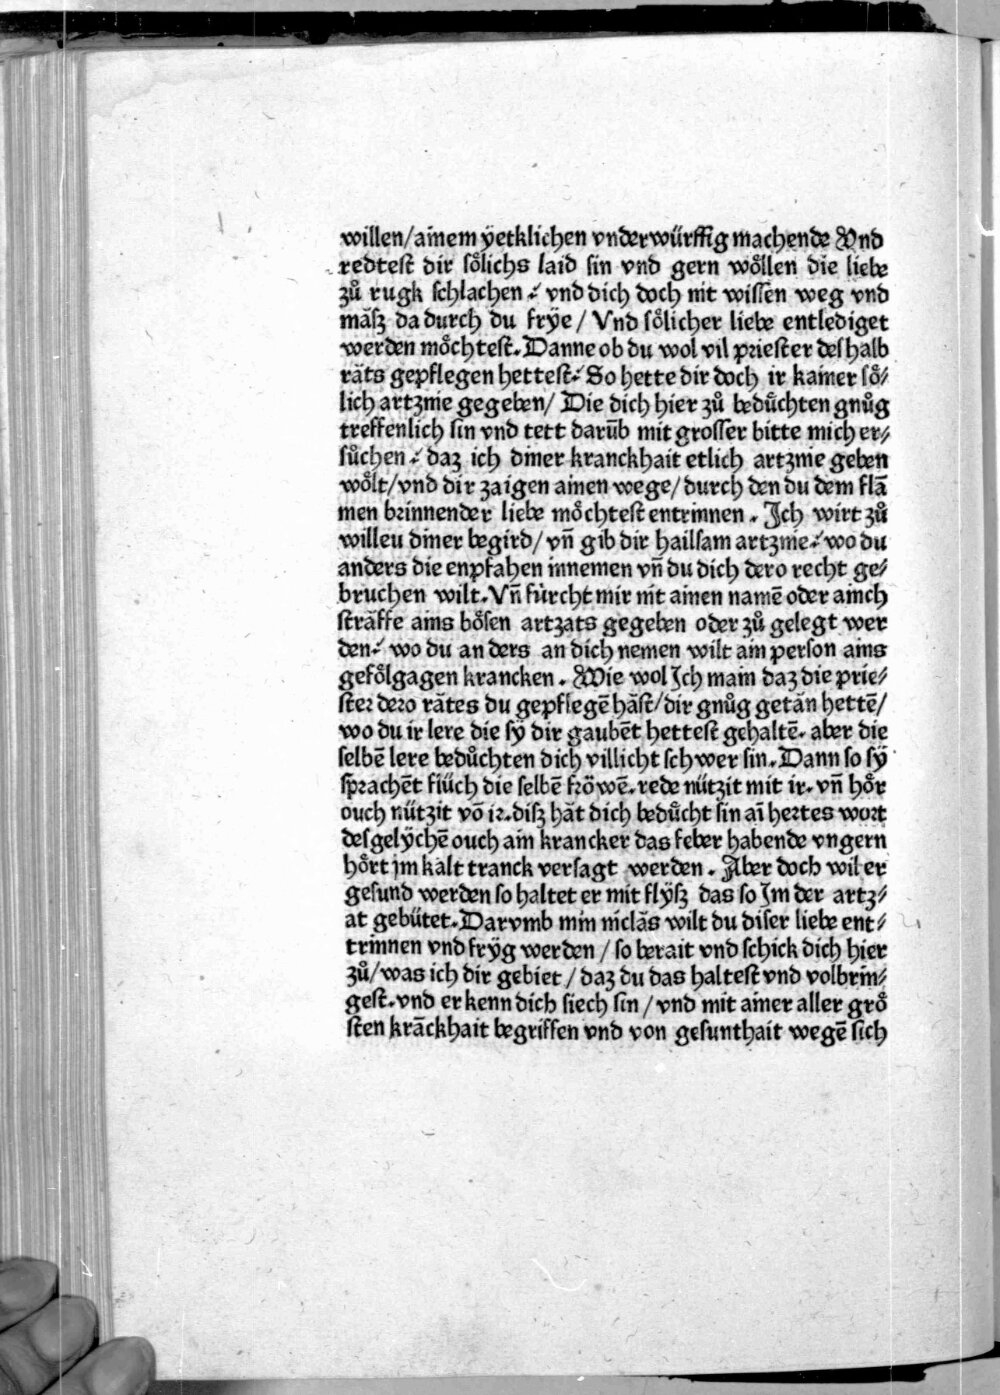 willen/ainem ÿetklichen vnderwürffig machende Vnd
redtest dir soͤlichs laid sin vnd gern woͤllen die liebe
zuͦ rugk schlachen ⸫ vnd dich doch nit wissen weg vnd
mäſʒ da durch du frÿe/ Vnd soͤlicher liebe entlediget
werden moͤchtest. Danne ob du wol vil priester deshalb
räts gepflegen hettest⸫ So hette dir doch ir kainer soͤ⸗
lich artznie gegeben/ Die dich hier zuͦ beduͤchten gnuͦg
treffenlich sin vnd tett darūb mit grosser bitte mich er⸗
suͦchen ⸫ daz ich diner kranckhait etlich artznie geben
woͤlt/vnd dir zaigen ainen wege/durch den du dem flā
men brinnender liebe moͤchtest entrinnen . Ich wirt zuͦ
willeu diner begird/ vn̄ gib dir hailsam artznie⸫ wo du
anders die enpfahen innemen vn̄ du dich dero recht ge⸗
bruchen wilt. Vn̄ fürcht mir nit ainen namē oder ainch
sträffe ains boͤsen artzats gegeben oder zuͦ gelegt wer
den⸫ wo du an ders an dich nemen wilt ain person ains
gefoͤlgagen krancken . Wie wol Ich main daz die prie⸗
ster dero rätes du gepflegē häst/dir gnuͦg getän hettē/
wo du ir lere die sÿ dir gaubēt hettest gehaltē. aber die
selbē lere beduͤchten dich villicht schwer sin. Dann so sÿ
sprachēt flüch die selbē fröwē. rede nützit mit ir. vn̄ hoͤr
ouch nützit vō ir. diſʒ hät dich beduͤcht sin aī hertes wort
desgelÿchē ouch ain krancker das feber habende vngern
hoͤrt jm kalt tranck versagt werden . Aber doch wil er
gesund werden so haltet er mit flÿſʒ das so Im der artz⸗
at gebütet. Darvmb min nicläs wilt du diser liebe ent⸗
trinnen vnd frÿg werden / so berait vnd schick dich hier
zuͦ/was ich dir gebiet / daz du das haltest vnd volbrin⸗
gest. vnd erkenn dich siech sin / vnd mit ainer aller groͤ
sten krāckhait begriffen vnd von gesunthait wegē sich